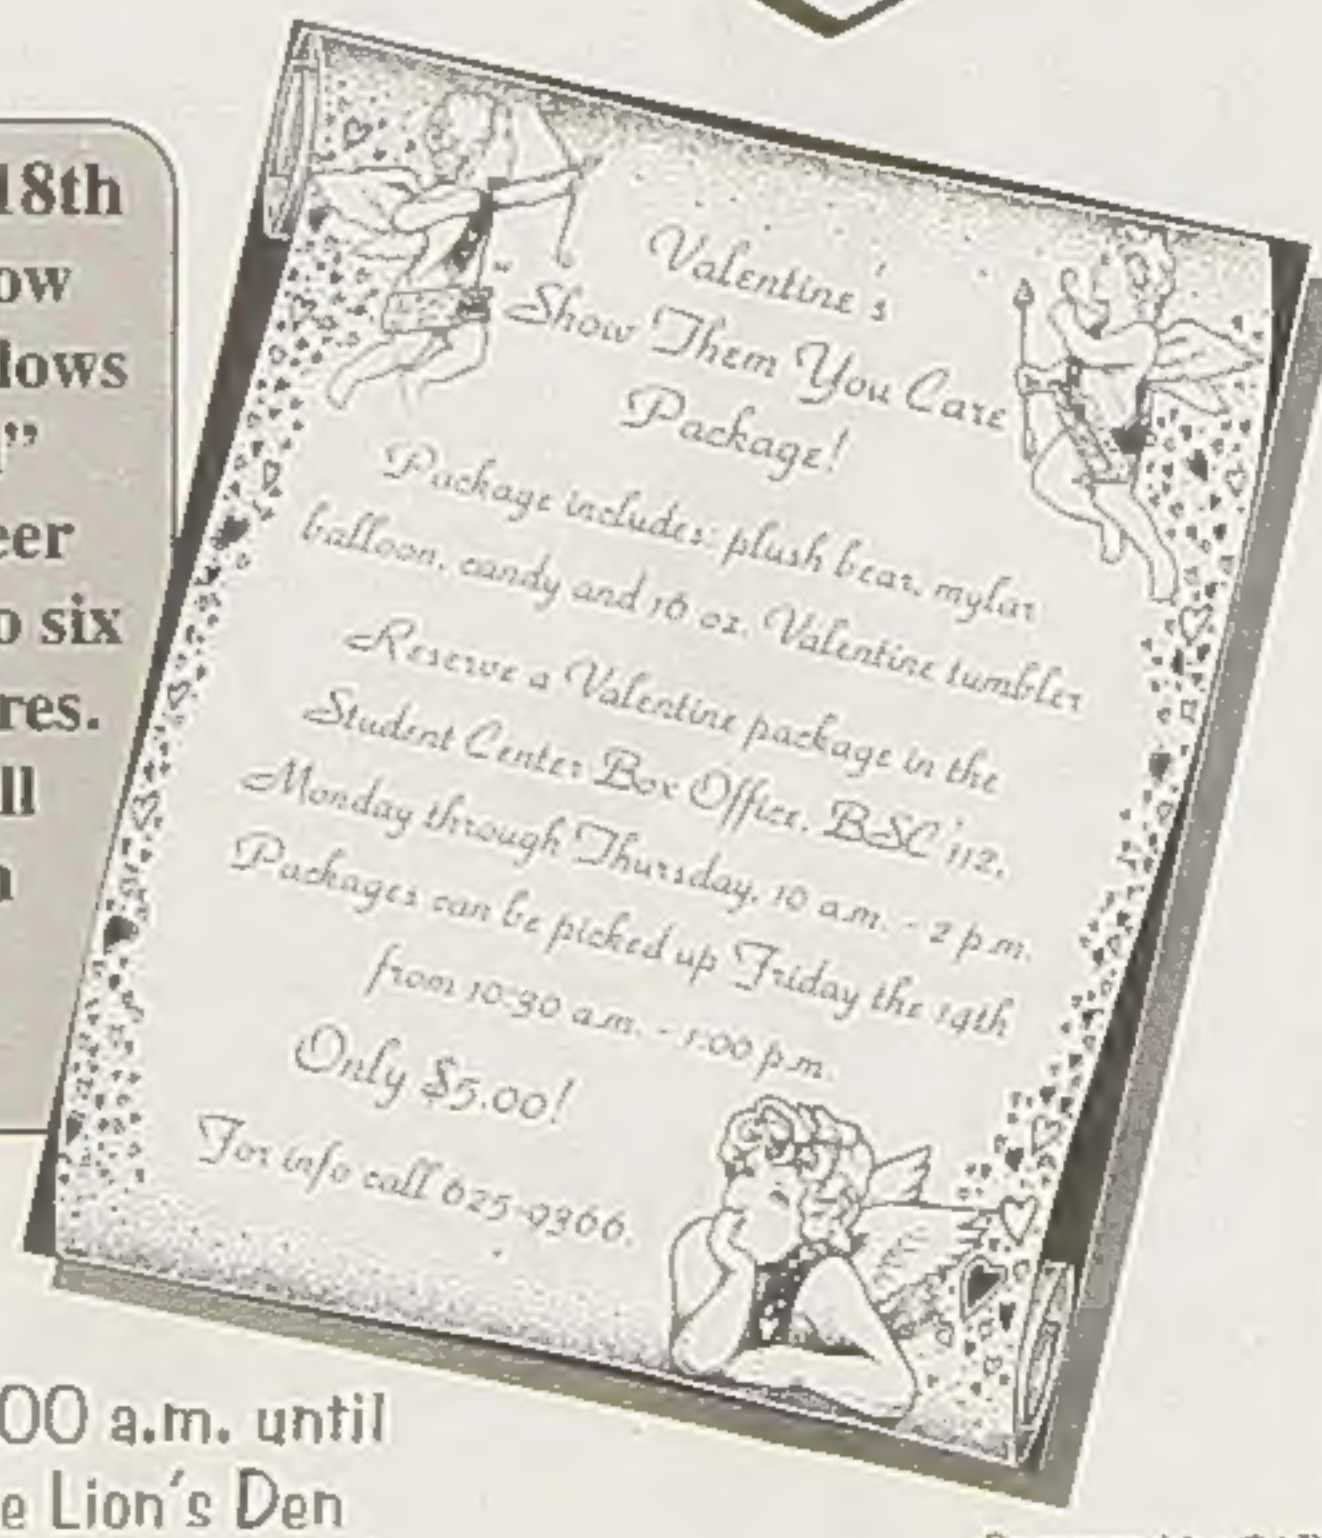 18th
ow
lows
”
eer
o six
res.
ll
Valentine's
"Show Them You Care
Package!
Package includes: plush bear, mylar
balloon, candy and 16 oz. Valentine tumbler
Reserve a Valentine package in the
Student Center Box Office, BSC 112,
Monday through Thursday, 10 a.m. - 2 p.m.
Packages can be picked up Friday the 14th
from 10:30 a.m. - 1:00 p.m.
Only $5.00!
For info call 625-9366.
00 a.m. until
e Lion's Den